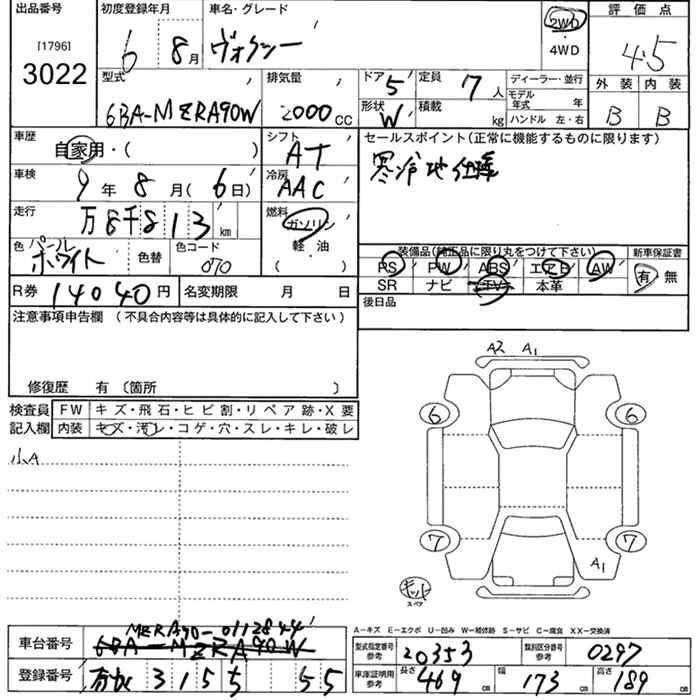 出品番号 初度登録年月 車名・グレード 評価点
[1796] 3022 6 8月 ヴォクシー 2WD 4WD 4.5
型式 排気量 ドア 5 定員 7人 ディーラー・並行 外装 内装
6BA-MZRA90W 2000cc 形状 W 積載 kg モデル年式 年 ハンドル 左・右 B B
車歴 自家用・( ) シフト AT セールスポイント(正常に機能するものに限ります)
車検 9年8月(6日) 冷房 AAC 寒冷地仕様
走行 万8千813km 燃料 ガソリン
色 パールホワイト 色替 色コード 070 軽油 ( )
装備品(純正品に限り丸をつけて下さい) 新車保証書
PS PW ABS エアB AW 有・無
SR ナビ TV 本革
R券 14040円 名変期限 月 日 後日品
注意事項申告欄 (不具合内容等は具体的に記入して下さい)
A2 A1
修復歴 有(箇所 )
検査員 FW キズ・飛石・ヒビ割・リペア跡・X要
記入欄 内装 キズ・汚レ・コゲ・穴・スレ・キレ・破レ
6 6
小A
7 7
A1
キット
スペア
A-キズ E-エクボ U-凹み W-補修跡 S-サビ C-腐食 XX-交換済
車台番号 MZRA90-0112844
6BA-MZRA90W
型式指定番号 参考 20353 類別区分番号 参考 0297
登録番号 315 55
車庫証明用 参考 長さ 469cm 幅 173cm 高さ 189cm